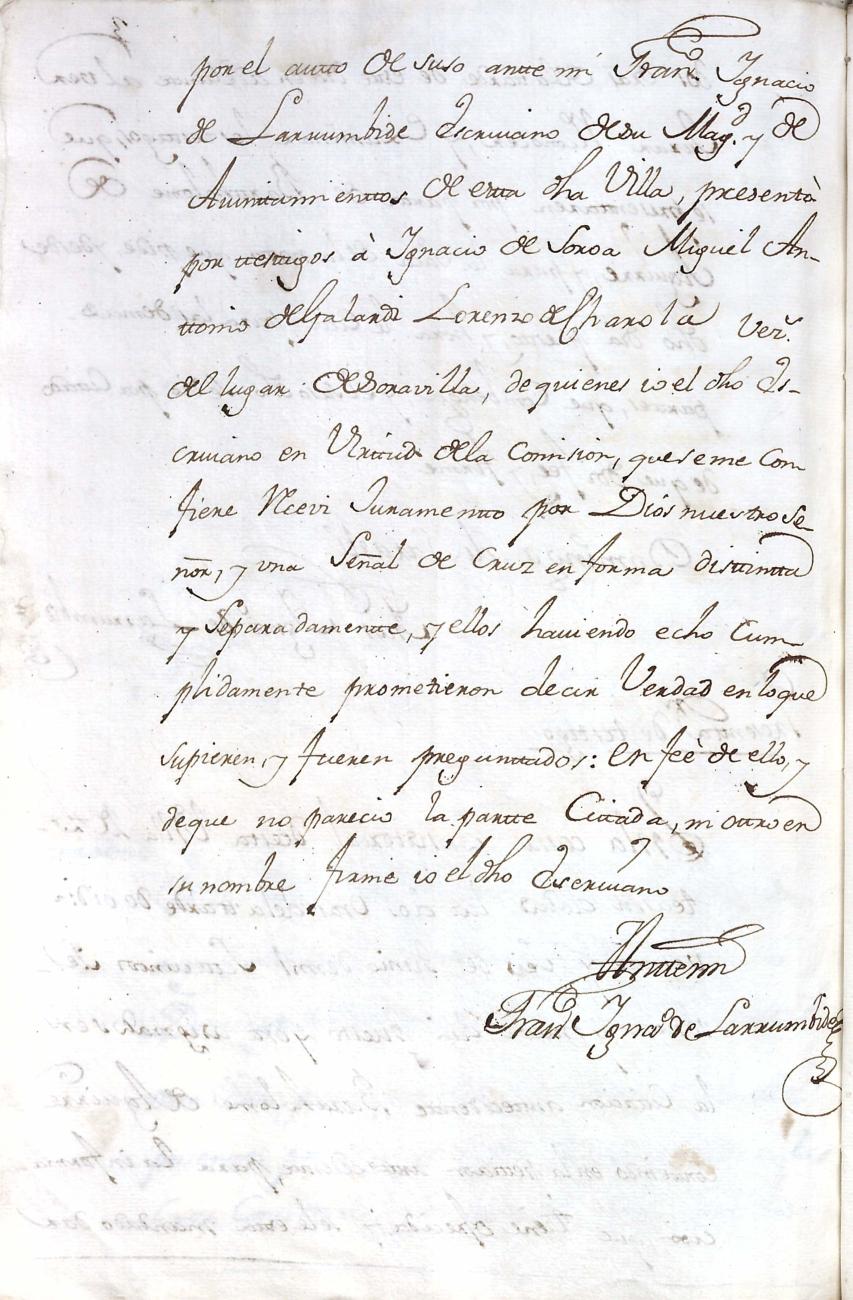 por el autto de suso antte mi Fran.co Ygnacio
de Larrumbide Escriviano de su Mag.d y de
Aiunttamienttos de estta dha Villa, presentò
por ttesttigos à Ygnacio de Soroa Miguel An-
ttonio de Galardi Lorenzo de Charola vez.s
del lugar de Soravilla, de quienes io el dho Es-
criviano en Virttud de la Comision, que se me Con
fiere Recevi Juramentto por Dios nuestro Se-
ñor, y una Señal de Cruz en forma disttintta
y Separadamentte, y ellos haviendo echo Cum-
plidamente prometieron decir Verdad en lo que
supieren, y fueren preguntados: en feè de ello, y
de que no pareciò la partte Cittada, ni ottro en
su nombre firme io el dho Escriviano
Anttemi
Fran.co Ygnà.o de Larrumbide